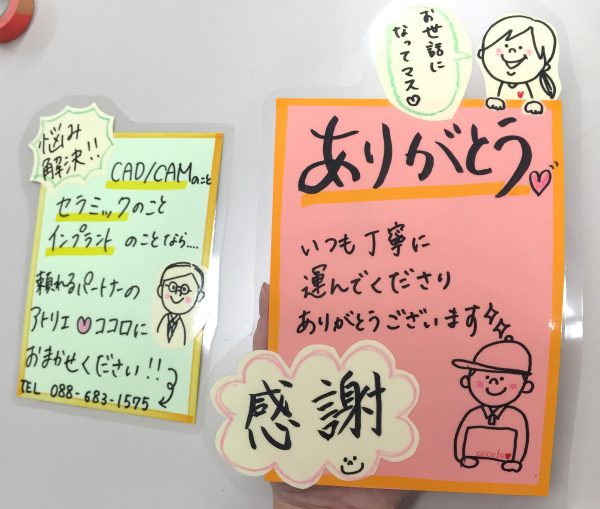 悩み
解決!!
CAD/CAMのこと
セラミックのこと
インプラントのことなら....
頼れるパートナーの
アトリエ♡ココロに
おまかせください!!
TEL 088-683-1575
お世話に
なってマス♡
ありがとう♡
いつも丁寧に
運んでくださり
ありがとうございます
感謝
cocolo♡